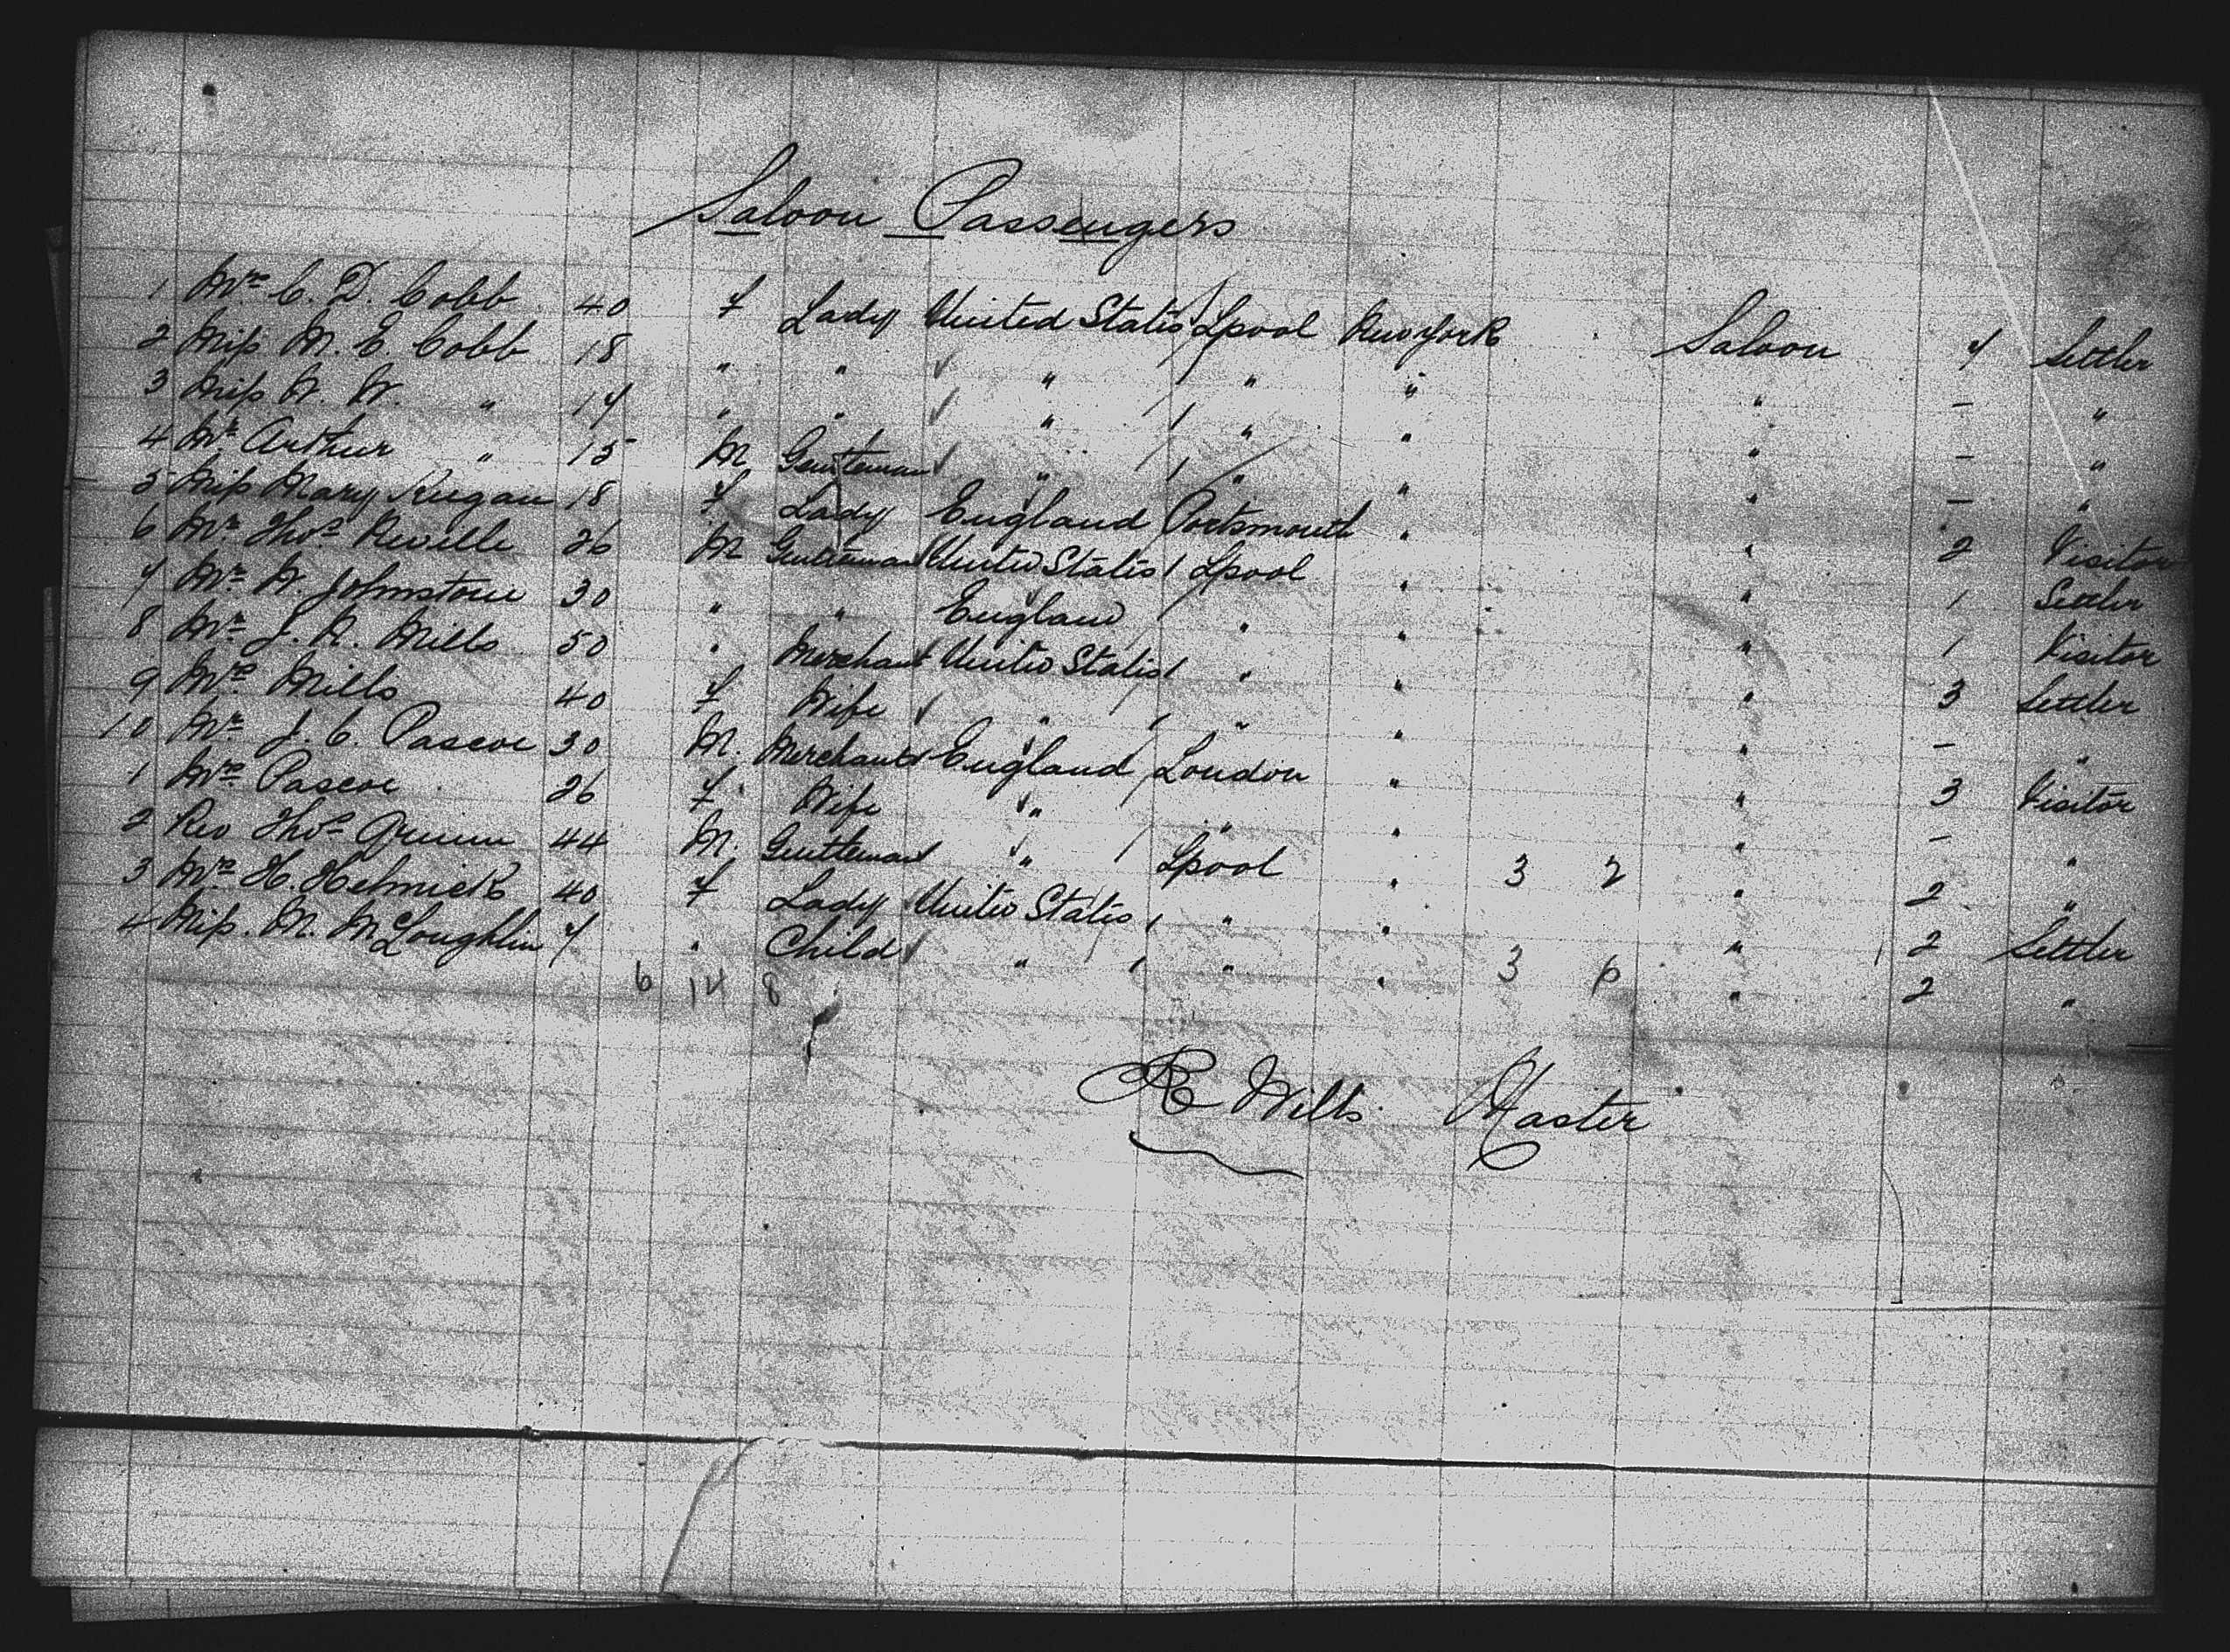 Saloon Passengers
1 Mrs C. D. Cobb 40 F Lady United States Lpool New York Saloon 7 Settler
2 Miss M. E. Cobb 18 " " " " " " — "
3 Miss W. W. " 14 " " " " " " — "
4 Mr Arthur " 15 M Gentleman " " " " — "
5 Miss Mary Keegan 18 F Lady England Portsmouth " " 2 Visitor
6 Mr Thos Reville 26 M Gentleman United States Lpool " " 1 Settler
7 Mr W. Johnstone 30 " " England " " " 1 Visitor
8 Mr J. N. Mills 50 " Merchant United States " " " 3 Settler
9 Mrs Mills 40 F Wife " " " " — "
10 Mr J. C. Pascoe 30 M. Merchant England London " " 3 Visitor
1 Mrs Pascoe 26 F Wife " " " " — "
2 Rev Thos Quinn 44 M. Gentleman " Lpool " 3 2 " 2 "
3 Mrs H. Helmick 40 F Lady United States " " " 2 Settler
4 Miss. M. McLoughlin 7 " Child " " " 3 " 2 "
6 14 8
R Wills Master